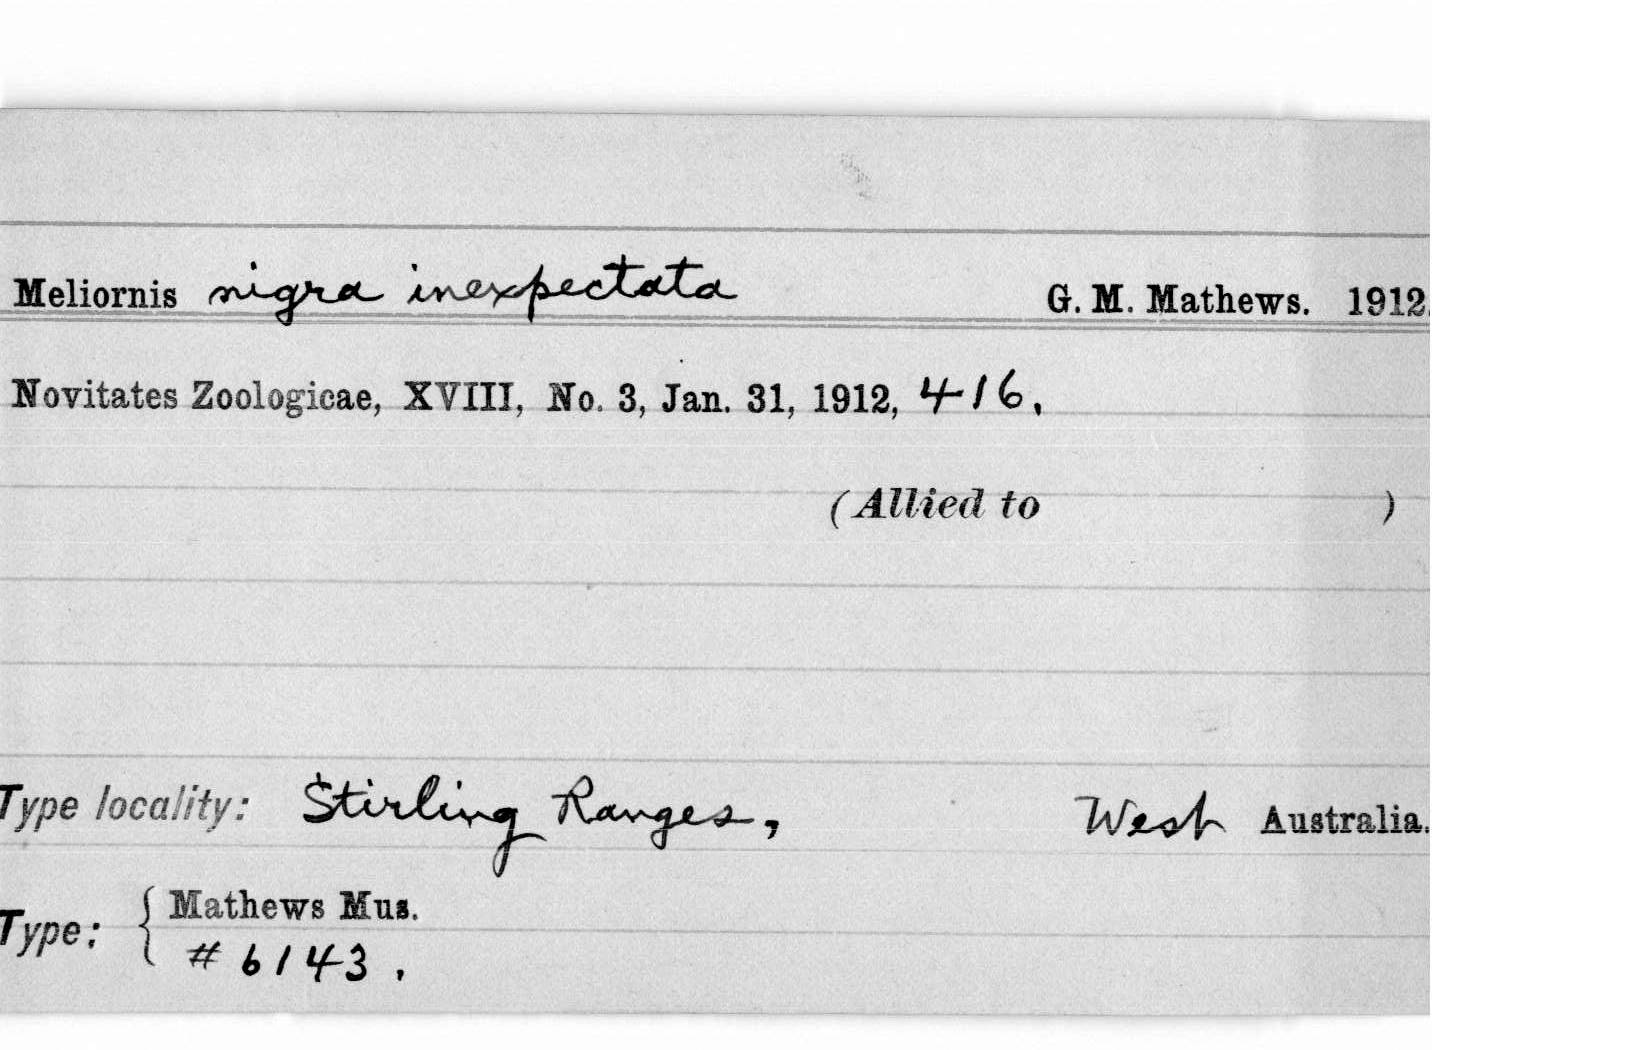 Meliornis nigra inexpectata G. M. Mathews. 1912.
Novitates Zoologicae, XVIII, No. 3, Jan. 31, 1912, 416.
(Allied to )
Type locality: Stirling Ranges, West Australia.
Type: { Mathews Mus.
# 6143.